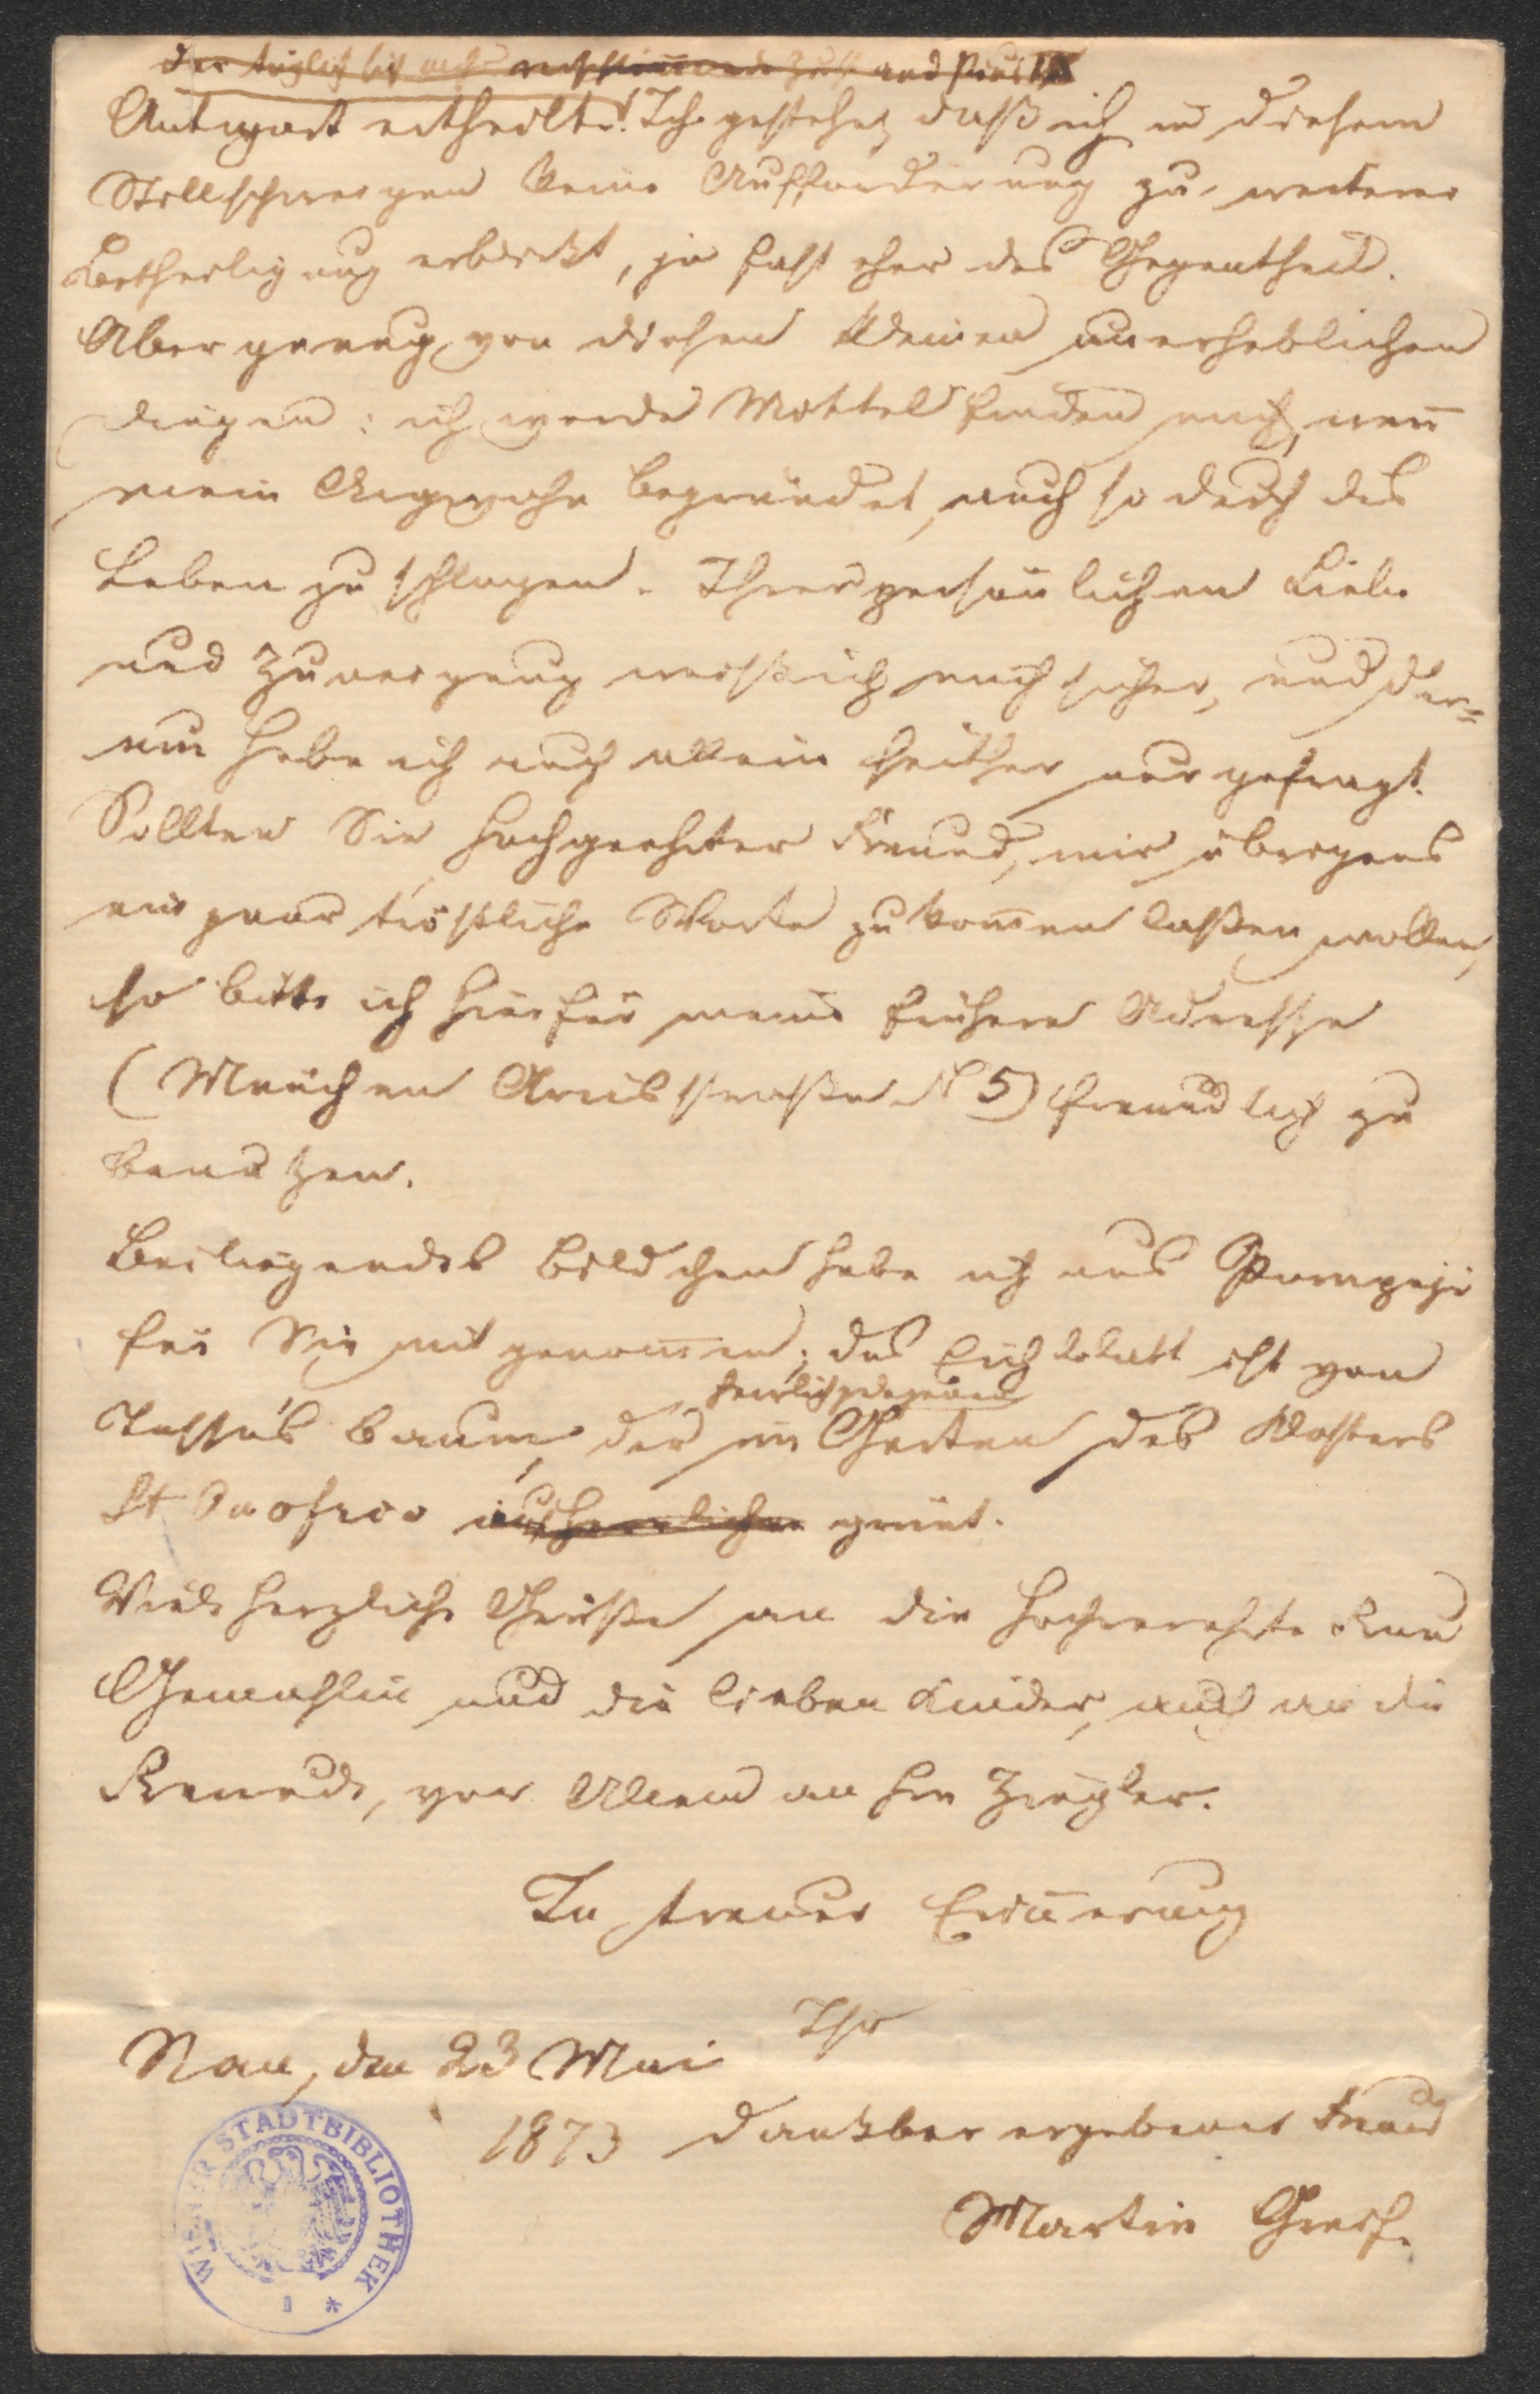 Der täglich sich mehr verschlimmernde Zustand Pius IX
Antwort ertheilte! Ich gestehe, daß ich in diesem
Stillschweigen keine Aufforderung zu weiterer
Betheiligung erblickt, ja fast eher das Gegentheil.
Aber genug von diesen kleinen unerheblichen
Dingen: ich werde Mittel finden mich, wen̄
mein Argwohn begründet, auch so durch das
Leben zu schlagen. Ihrer persönlichen Liebe
und Zuneigung weiß ich mich sicher, und dar=
um habe ich auch allein seither nur gefragt.
Sollten Sie hochgeehrter Freund, mir übrigens
ein paar tröstliche Worte zukom̄en laßen wollen,
so bitte ich hierfür meine frühere Adresse
(München Arcisstraße N 5) freundlich zu
benutzen.
Beiliegendes Bildchen habe ich aus Pompeji
für Sie mitgenom̄en; das Eichblatt ist von
Tasso's Baum, der im Garten des Klosters
St Onofrio herrlich grünt.
Viele herzliche Grüße an die hochverehrte Frau
Gemahlin und die lieben Kinder, auch an die
Freunde, vor Allem an Hrn Ziegler.
In treuer Erin̄erung
Ihr
den 23 Mai
1873 dankbar ergebener Freund
Martin Greif.
WIENER STADTBIBLIOTHEK *